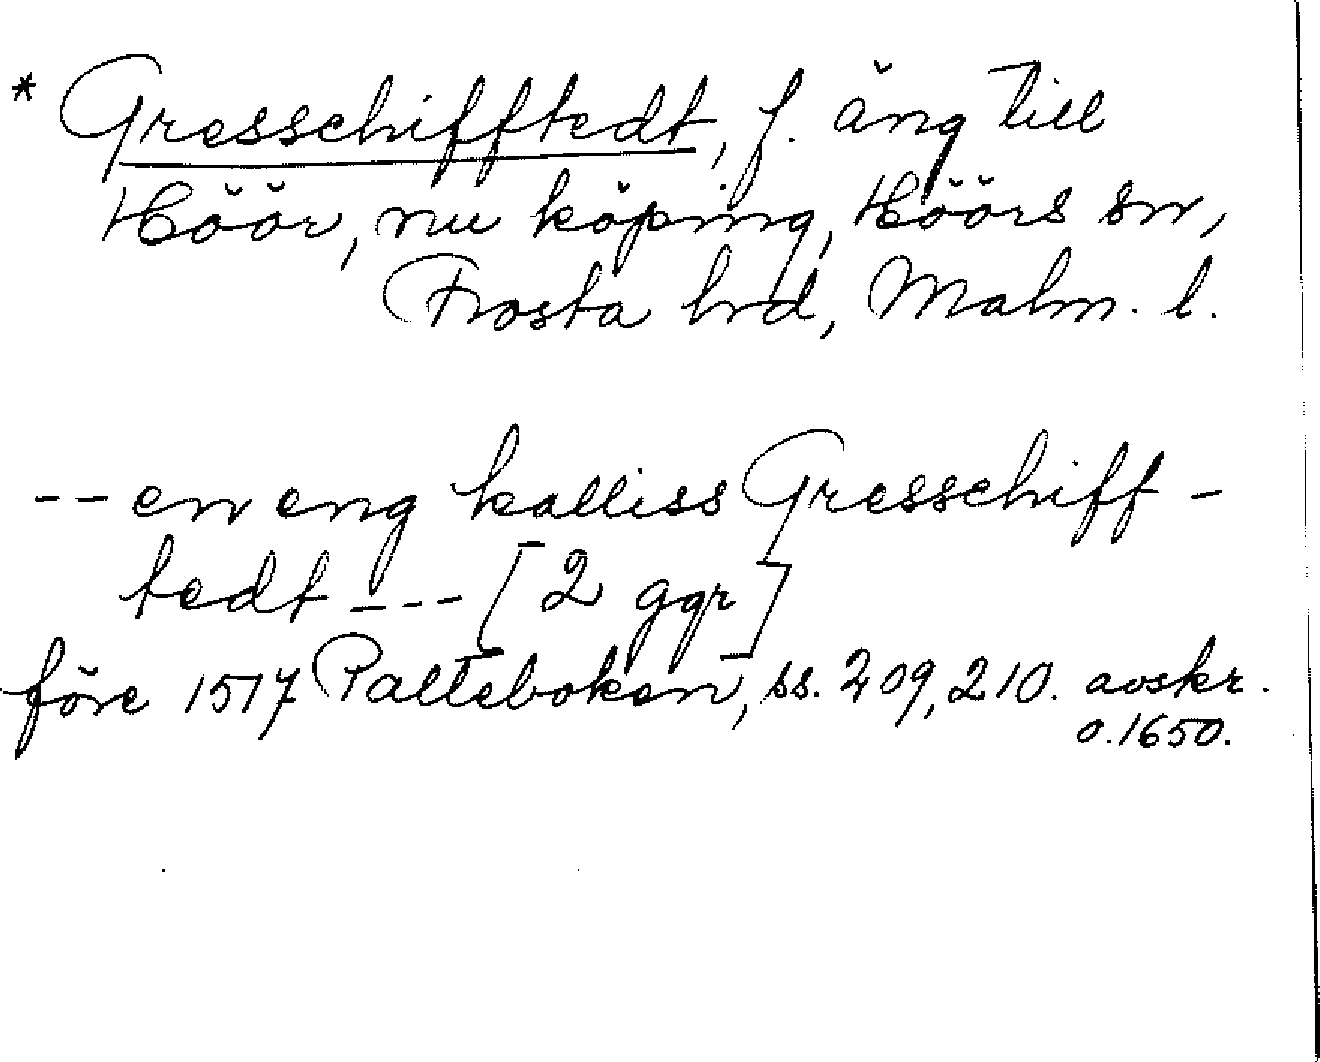 * Gresschifftedt, f. äng till
Höör, nu köping, Höörs sn,
Frosta hrd, Malm. l.
-- en eng kalliss Gresschiff-
tedt --- [2 ggr]
före 1517 Palteboken, ss. 209, 210. avskr.
o. 1650.